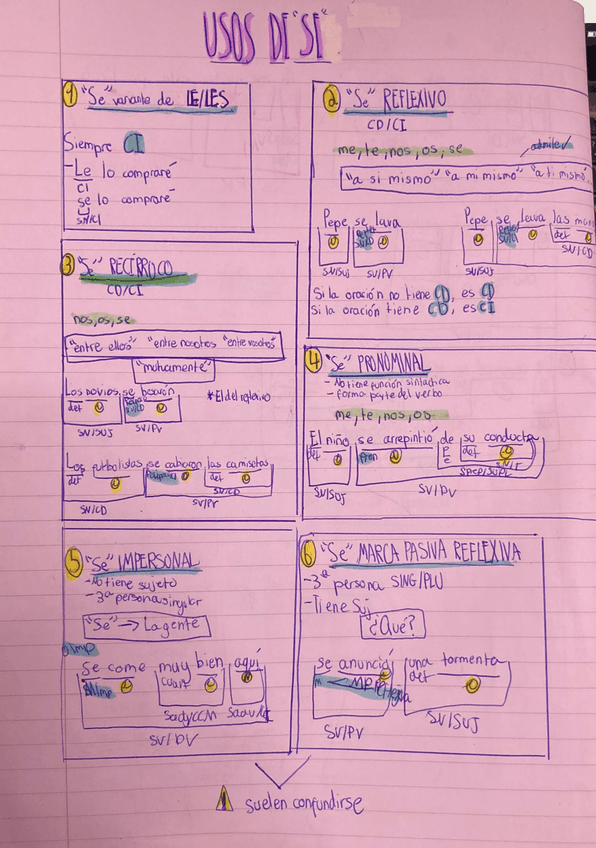 USOS DE "SE"
1 "Se" variante de LE/LES
Siempre CI
-Le lo compraré
CI
se lo compraré
SN/CI
2 "Se" REFLEXIVO
CD/CI
me, te, nos, os, se
admite ✓
"a si mismo" "a mi mismo" "a ti mismo"
Pepe se lava
SN/SUJ SV/PV
Pepe se lava las man
det
SN/CD
SN/SUJ
Si la oración no tiene CD, es CD
Si la oración tiene CD, es CI
3 "Se" RECÍRROCO
CD/CI
nos, os, se
"entre ellos" "entre nosotros "entre vosotros"
"mutuamente"
Los novios se besaron
det
SN/SUJ SV/PV
Los futbolistas se cabiaron las camisetas
det det
SN/CD
SN/CD SV/PV
4 "Se" PRONOMINAL
- No tiene función sintáctica
- forma parte del verbo
me, te, nos, os
El niño se arrepintió de su conducta
det det
SN/SUJ SV/PV
5 "Se" IMPERSONAL
- No tiene sujeto
- 3ª persona singular
"Se" → La gente
Se come muy bien aquí
Cuant
SV/PV
6 "Se" MARCA PASIVA REFLEXIVA
-3ª persona SING/PLU
-Tiene Suj
¿Qué?
se anunció una tormenta
det
SV/PV SN/SUJ
suelen confundirse